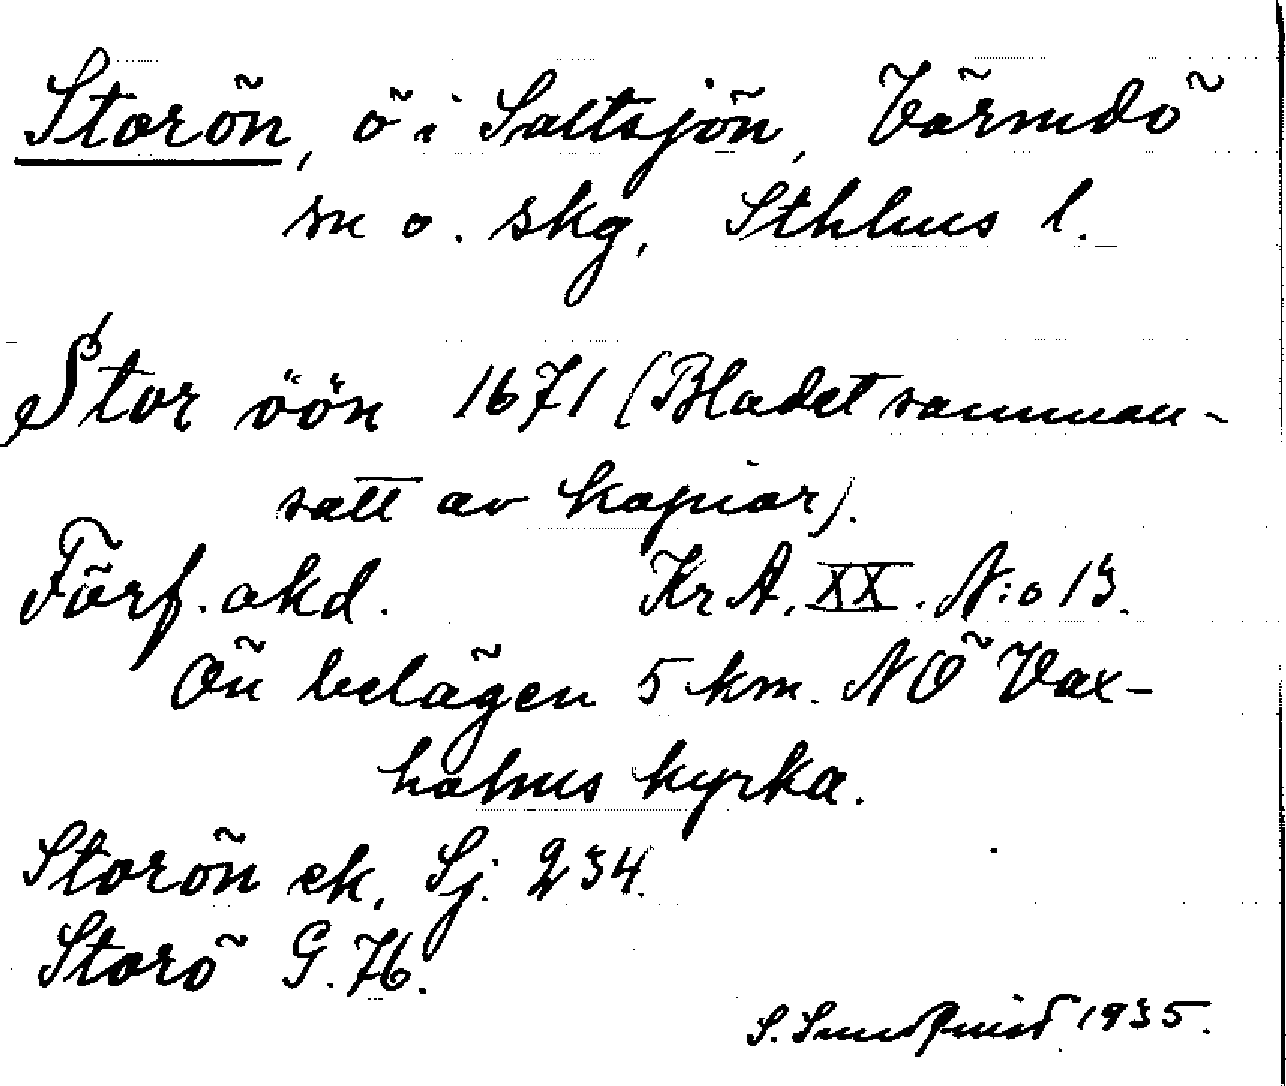 Storön, ö i Saltsjön, Värmdö
sn o. skg, Sthlms l.
Stor öön 1671 (Bladet samman-
satt av kopior).
Förf. okd. Kr A. XX. N:o 13.
Ön belägen 5 km. NÖ Vax-
holms kyrka.
Storön ek. Sj. 234.
Storö G. 76.
S. Sundquist 1935.